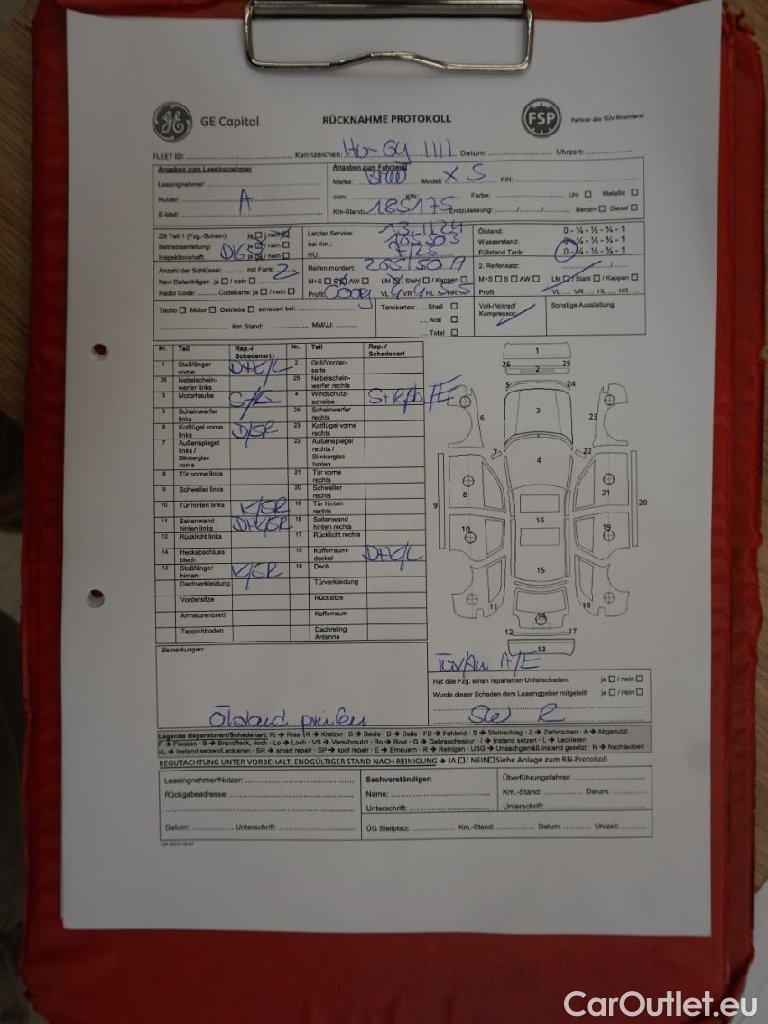 GE Capital RÜCKNAHME PROTOKOLL FSP Partner des TÜV Rheinland
FLEET ID: Kennzeichen: HG-GY 1111 Datum: Uhrzeit:
Angaben zum Leasingnehmer Angaben zum Fahrzeug
Leasingnehmer: Marke: BMW Model: X 5 FIN:
Nutzer: A ccm: KW: Farbe: Uni Metallic
E-Mail: Km-Stand: 185175 Erstzulassung: Benzin Diesel
ZB Teil 1 (Fzg.-Schein): ja / nein Letzter Service: 13.11.24 Ölstand: 0 - ¼ - ½ - ¾ - 1
Betriebsanleitung: ja / nein bei Km.: Wasserstand: 0 - ¼ - ½ - ¾ - 1
Inspektionsheft: DIG ja / nein HU: Füllstand Tank: 0 - ¼ - ½ - ¾ - 1
Anzahl der Schlüssel: mit Funk: 2 Reifen montiert: 265/50 19 2. Reifensatz:
Navi Datenträger: ja / nein M+S S AW LM / Stahl / Kappen M+S S AW LM / Stahl / Kappen
Radio Code: Codekarte: ja / nein Profil: VL VR HL HR Profil VL ... VR ... HL ... HR ...
Tacho Motor Getriebe erneuert bei: Tankkarten: Shell Voll-/Notrad/ Sonstige Ausstattung:
Kompressor:
Km Stand: MM/JJ: Aral
Total
Nr. Teil Rep./ Schadenart Nr. Teil Rep./ Schadenart
1 Stoßfänger vorne D+K/L 2 Grill/Vorderseite
26 Nebelscheinwerfer links 25 Nebelscheinwerfer rechts
3 Motorhaube 4 Windschutzscheibe
5 Scheinwerfer links 24 Scheinwerfer rechts
6 Kotflügel vorne links D/SR 23 Kotflügel vorne rechts
7 Außenspiegel links / Blinkerglas vorne 22 Außenspiegel rechts / Blinkerglas hinten
8 Tür vorne links 21 Tür vorne rechts
9 Schweller links 20 Schweller rechts
10 Tür hinten links K/SR 19 Tür hinten rechts
11 Seitenwand hinten links D+K/SR 18 Seitenwand hinten rechts
12 Rücklicht links 17 Rücklicht rechts
14 Heckabschlussblech 15 Kofferraumdeckel D+K/L
13 Stoßfänger hinten K/SR 16 Dach
Dachverkleidung Türverkleidung
Vordersitze Rücksitze
Armaturenbrett Kofferraum
Teppichboden Dachreling Antenne
1
26 2 25
5 24
6 3 23
7 22
4
8 21
9 20
16
10 19
15
11 14 18
12 17
13
Bemerkungen:
Ölstand prüfen
TÜV/AU A/E
Hat das Fzg. einen reparierten Unfallschaden: ja / nein
Wurde dieser Schaden dem Leasinggeber mitgeteilt ja / nein
Legende Reparaturart/Schadenart: Ri → Riss K → Kratzer B → Beule D → Delle FD → Fehlend S → Steinschlag Z → Zerbrochen A → Abgenutzt
F → Flecken B → Brandfleck, -loch Lo → Loch VS → Verschmutzt Ro → Rost G → Gebrauchsspur I → Instand setzen L → Lackieren
IL → Instand setzen/Lackieren SR → smart repair SP → spot repair E → Erneuern R → Reinigen USG → Unsachgemäß instand gesetzt N → Nachlackiert
BEGUTACHTUNG UNTER VORBEHALT, ENDGÜLTIGER STAND NACH REINIGUNG → JA / NEIN Siehe Anlage zum RN-Protokoll
Leasingnehmer/Nutzer: Sachverständiger: Überführungsfahrer:
Rückgabeadresse: Name: Km.-Stand: Datum:
Unterschrift: Unterschrift:
Datum: Unterschrift: ÜG Stellplatz: Km.-Stand: Datum: Uhrzeit:
CarOutlet.eu